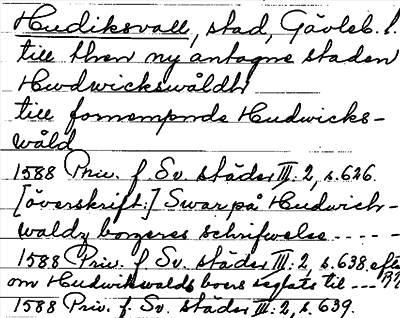 Hudiksvall, stad, Gävleb. l.
till then ny antagne staden
Hwdwickswåldh
till fornempnde Hudwicks-
wåld
1588 Priv. f. Sv. städer III:2, s.626.
[överskrift:] Swar på Hudwich-
waldz borgeres schrifwelse - - - -
1588 Priv. f. Sv. städer III:2, s.638. efter
om Hudwikwalds boers seglats til ---
1588 Priv. f. Sv. städer III:2, s.639.